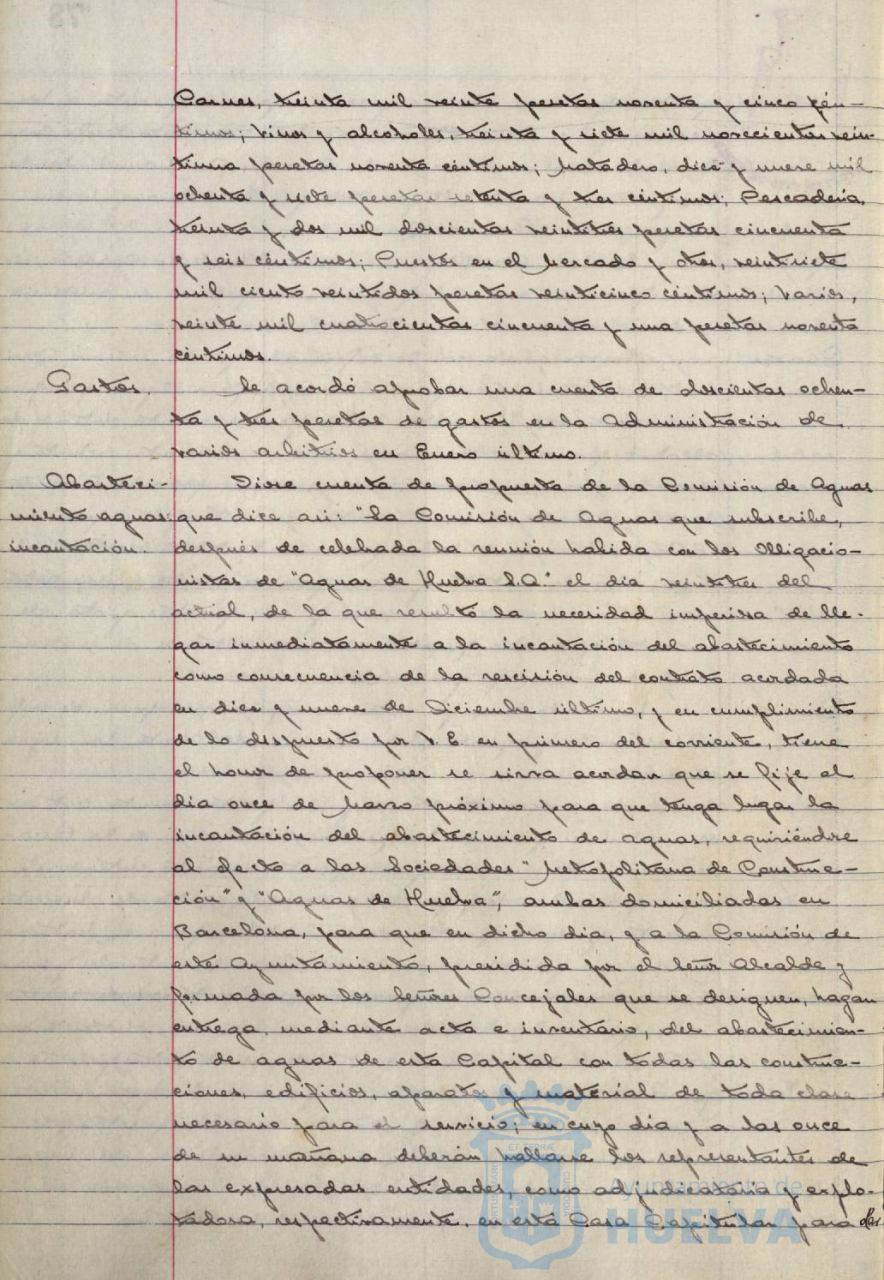 Carnes, treinta mil veinte pesetas noventa y cinco cén-
timos; vinos y alcoholes, treinta y siete mil novecientas vein-
tiuna pesetas noventa céntimos; Matadero, diez y nueve mil
ochenta y siete pesetas setenta y tres céntimos; Pescadería,
treinta y dos mil doscientas veintitrés pesetas cincuenta
y seis céntimos; Puestos en el Mercado y otros, veintisiete
mil ciento veintidos pesetas veinticinco céntimos; varios,
veinte mil cuatrocientas cincuenta y una pesetas noventa
céntimos.
Gastos.
Se acordó aprobar una cuenta de doscientas ochen-
ta y tres pesetas de gastos en la Administración de
varios arbitrios en Enero último.
Abasteci-
miento aguas:
incautación.
Diose cuenta de propuesta de la Comisión de Aguas
que dice así: "La Comisión de Aguas que subscribe,
después de celebrada la reunión habida con los Obligacio-
nistas de "Aguas de Huelva S.A." el día veintitres del
actual, de la que resultó la necesidad imperiosa de lle-
gar inmediatamente a la incautación del abastecimiento
como consecuencia de la rescisión del contrato acordada
en diez y nueve de Diciembre último, y en cumplimiento
de lo dispuesto por V.E. en primero del corriente, tiene
el honor de proponer se sirva acordar que se fije el
día once de Marzo próximo para que tenga lugar la
incautación del abastecimiento de aguas, requiriéndose
al efecto a las Sociedades "Metropolitana de Construc-
ción" y "Aguas de Huelva", ambas domiciliadas en
Barcelona, para que en dicho día, y a la Comisión de
este Ayuntamiento, presidida por el Señor Alcalde y
formada por los Señores Concejales que se designen, hagan
entrega, mediante acta e inventario, del abastecimien-
to de aguas de esta Capital con todas las construc-
ciones, edificios, aparatos y material de toda clase
necesario para el servicio; en cuyo día y a las once
de su mañana deberán hallarse los representantes de
las expresadas entidades, como adjudicataria y explo-
tadora, respectivamente, en esta Casa Capitular para
Ayuntamiento de
HUELVA